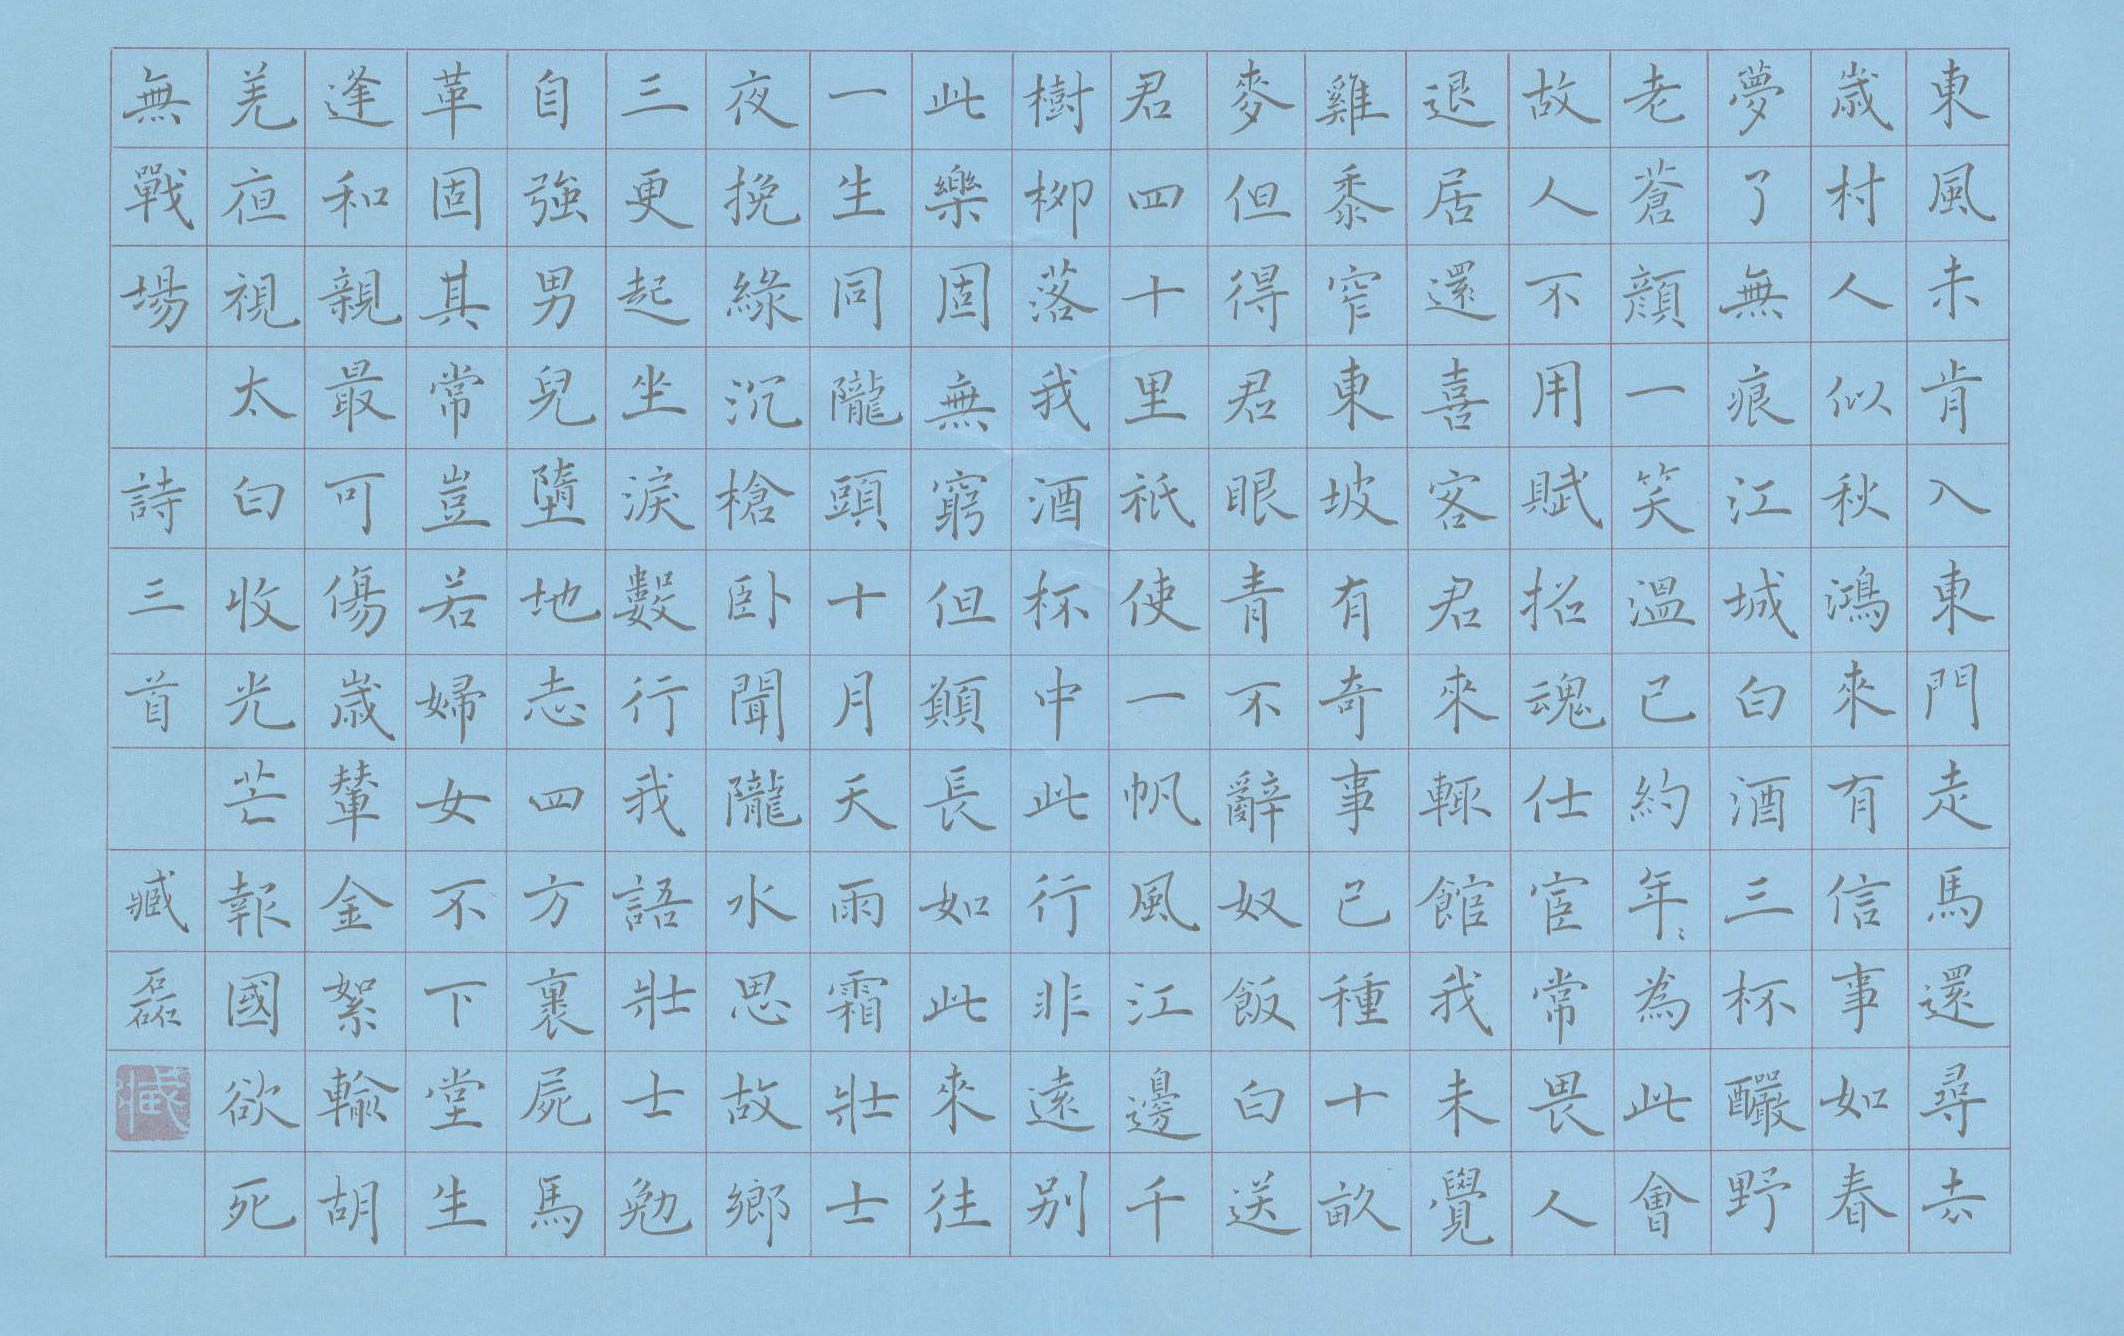 東風未肯入東門走馬還尋去
歲村人似秋鴻來有信事如春
夢了無痕江城白酒三杯釅野
老蒼顏一笑溫已約年〻為此會
故人不用賦招魂仕宦常畏人
退居還喜客君來輒館我未覺
雞黍窄東坡有奇事已種十畝
麥但得君眼青不辭奴飯白送
君四十里祇使一帆風江邊千
樹柳落我酒杯中此行非遠別
此樂固無窮但願長如此來往
一生同隴頭十月天雨霜壯士
夜挽綠沉槍臥聞隴水思故鄉
三更起坐淚數行我語壯士勉
自強男兒墮地志四方裹屍馬
革固其常豈若婦女不下堂生
逢和親最可傷歲輦金絮輸胡
羌夜視太白收光芒報國欲死
無戰場 詩三首 臧磊 臧